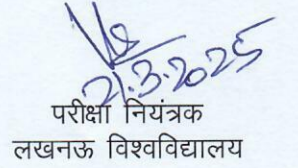 21.3.2025
परीक्षा नियंत्रक
लखनऊ विश्वविद्यालय